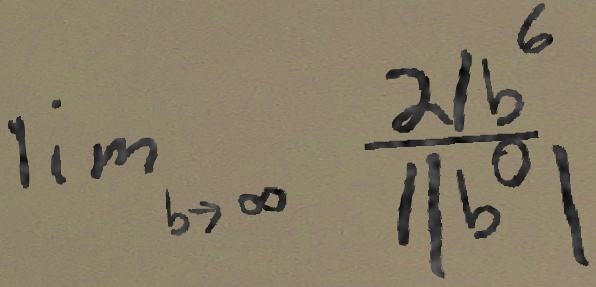 \lim_{b \to \infty} \frac{21b^6}{1|b^0|}